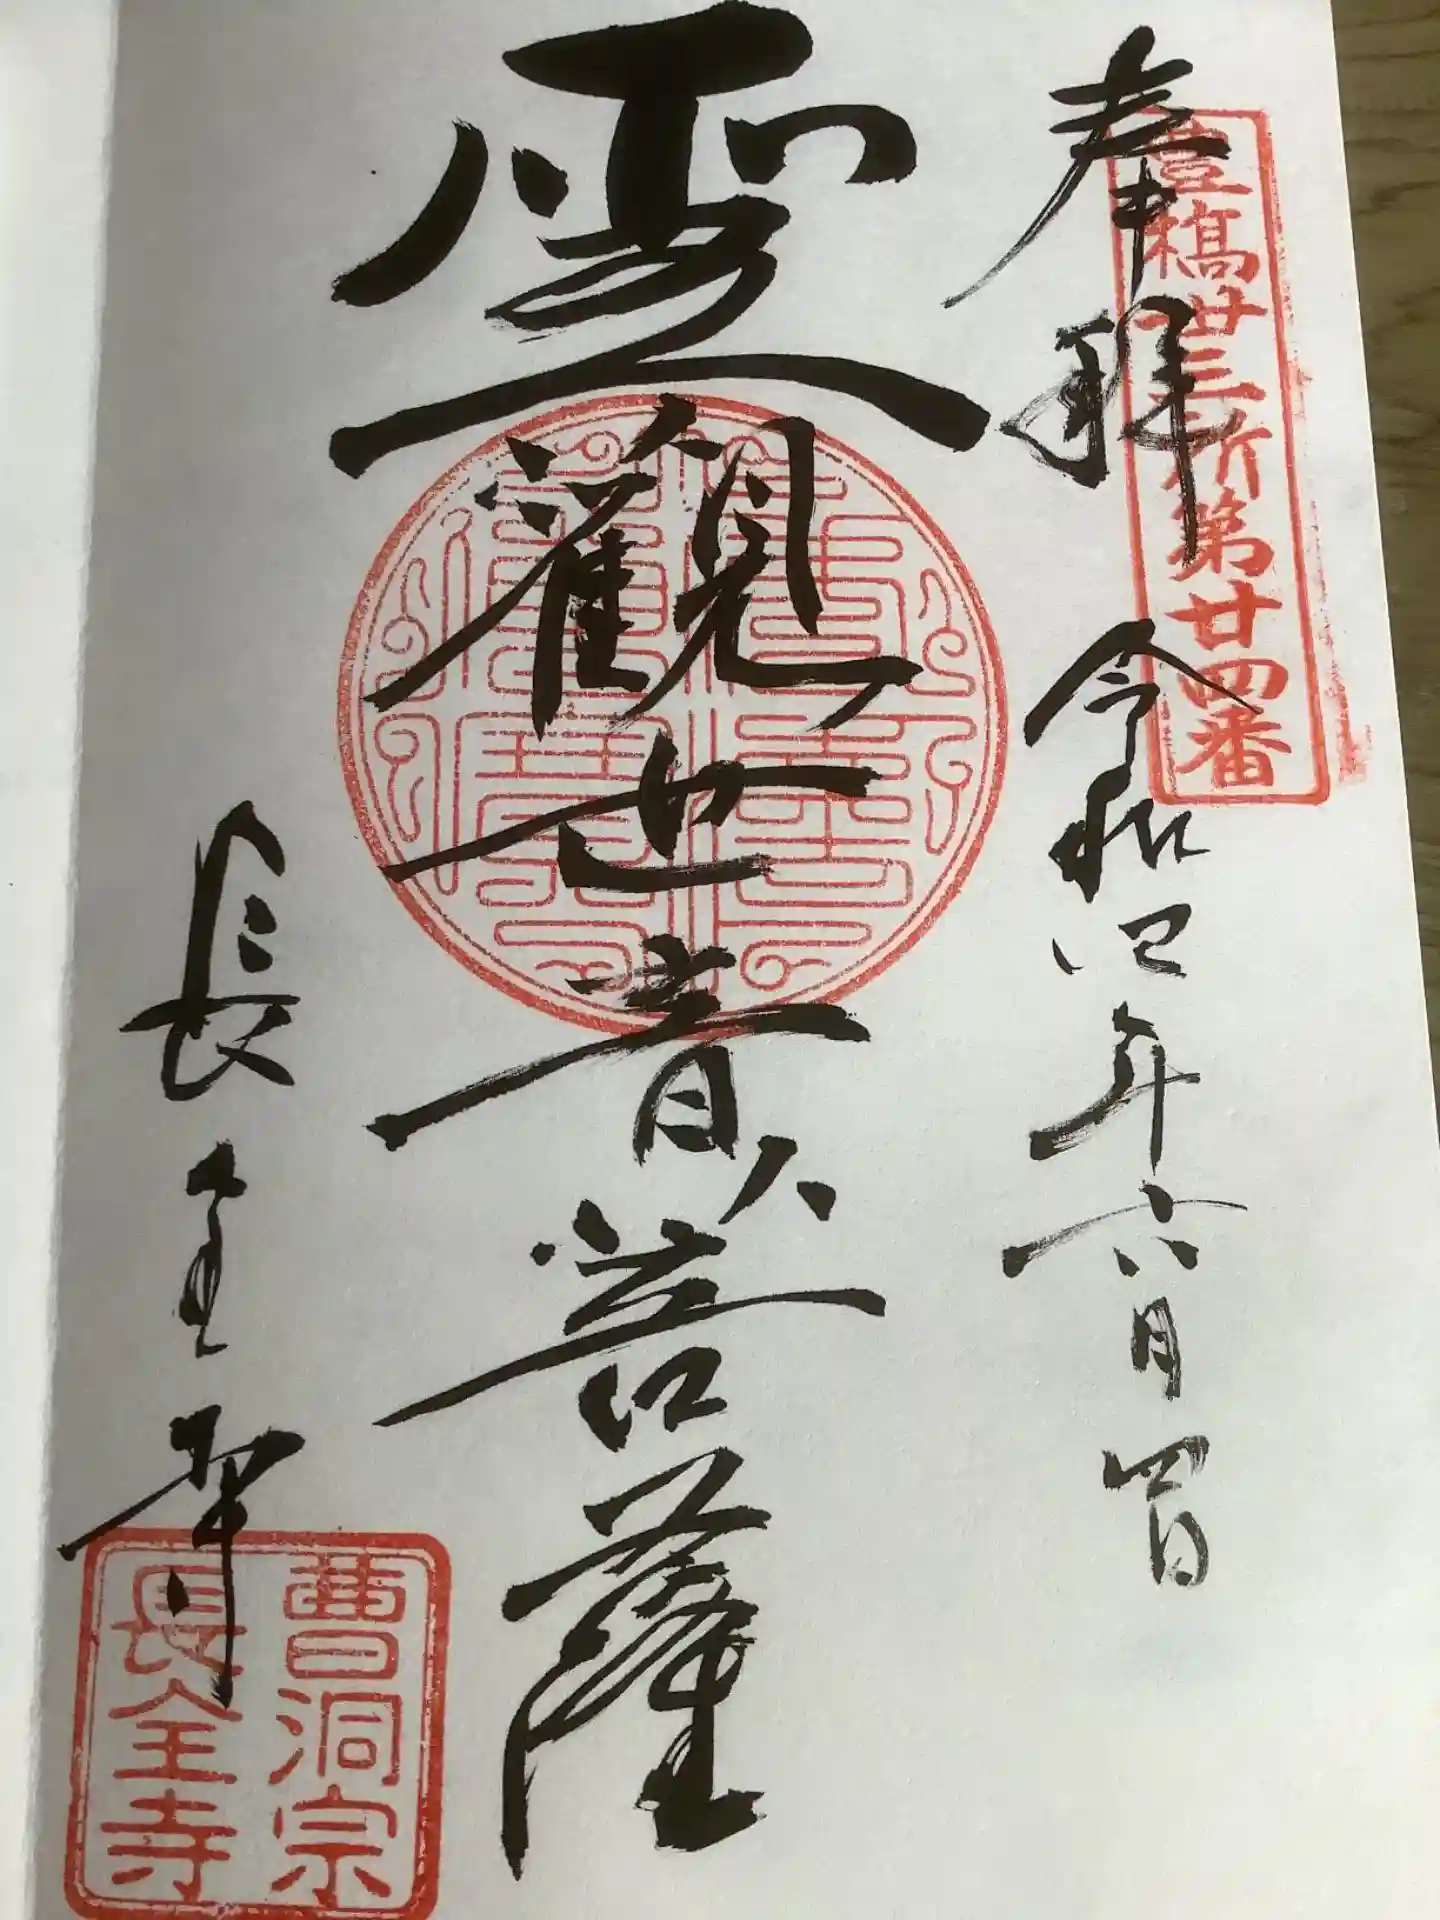 豊橋卅三所第廿四番
奉拝 令和四年六月四日
聖觀世音菩薩
長全寺
曹洞宗
長全寺